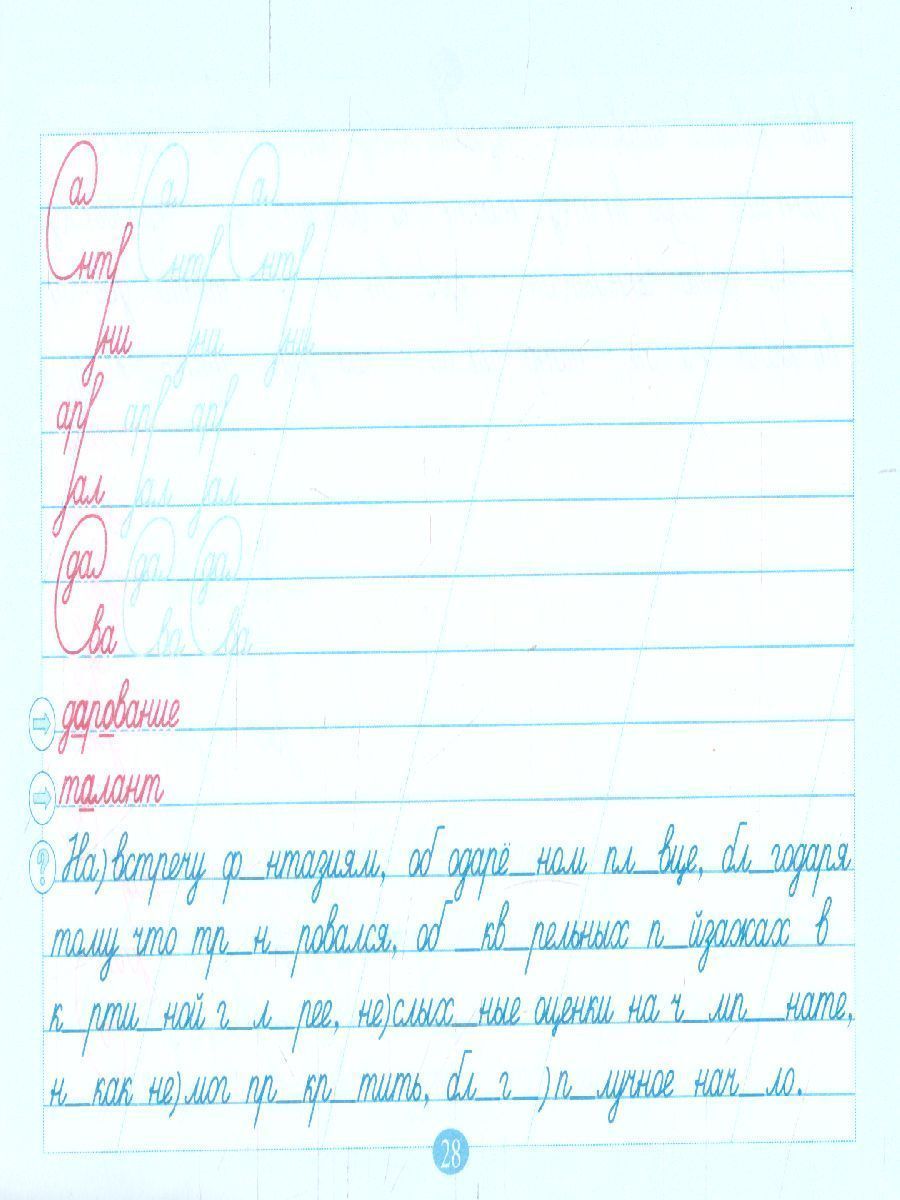 а а а
нтр нтр нтр
ни на ни
арр арр арр
ал ал ал
да да да
ва ва ва
дарование
талант
? На)встречу ф_нтазиям, об одарё_ном пл_вце, бл_годаря
тому что тр_н_ровался, об _кв_рельных п_йзажах в
к_рти_ной г_л_рее, не)слых_ные оценки на ч_мп__нате,
н_как не)мог пр_кр_тить, бл_г_)п_лучное нач_ло.
28